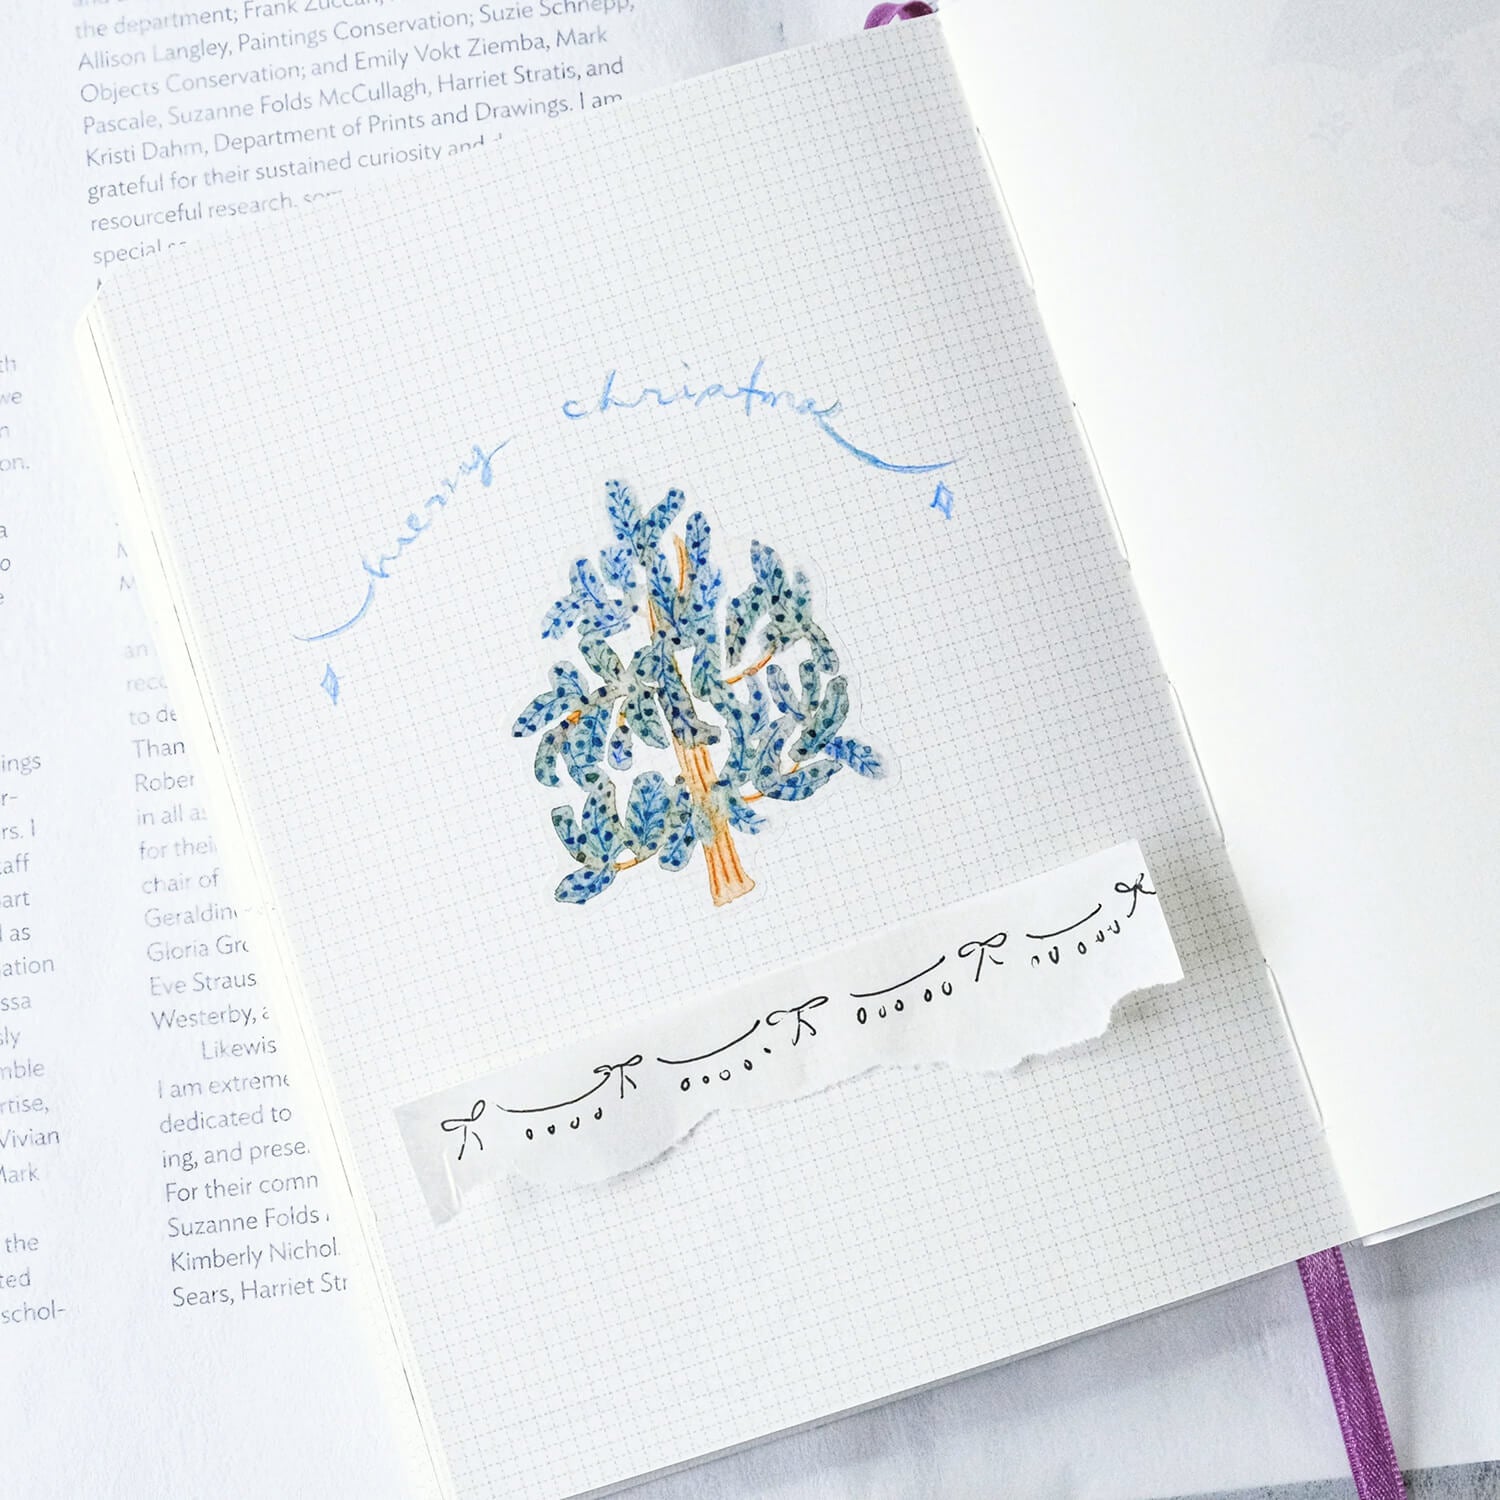 the department; Frank Zuccari,
Allison Langley, Paintings Conservation; Suzie Schnepp,
Objects Conservation; and Emily Vokt Ziemba, Mark
Pascale, Suzanne Folds McCullagh, Harriet Stratis, and
Kristi Dahm, Department of Prints and Drawings. I am
grateful for their sustained curiosity and
resourceful research.
special
merry christmas
th
we
n
on.
a
o
e
ings
r-
rs. I
taff
art
l as
ation
ssa
sly
mble
rtise,
Vivian
Mark
the
ted
schol-
an
reco
to de
Than
Rober
in all as
for thei
chair of
Geraldin
Gloria Gro
Eve Straus
Westerby, a
Likewis
I am extreme
dedicated to
ing, and prese
For their comn
Suzanne Folds
Kimberly Nichol
Sears, Harriet Str